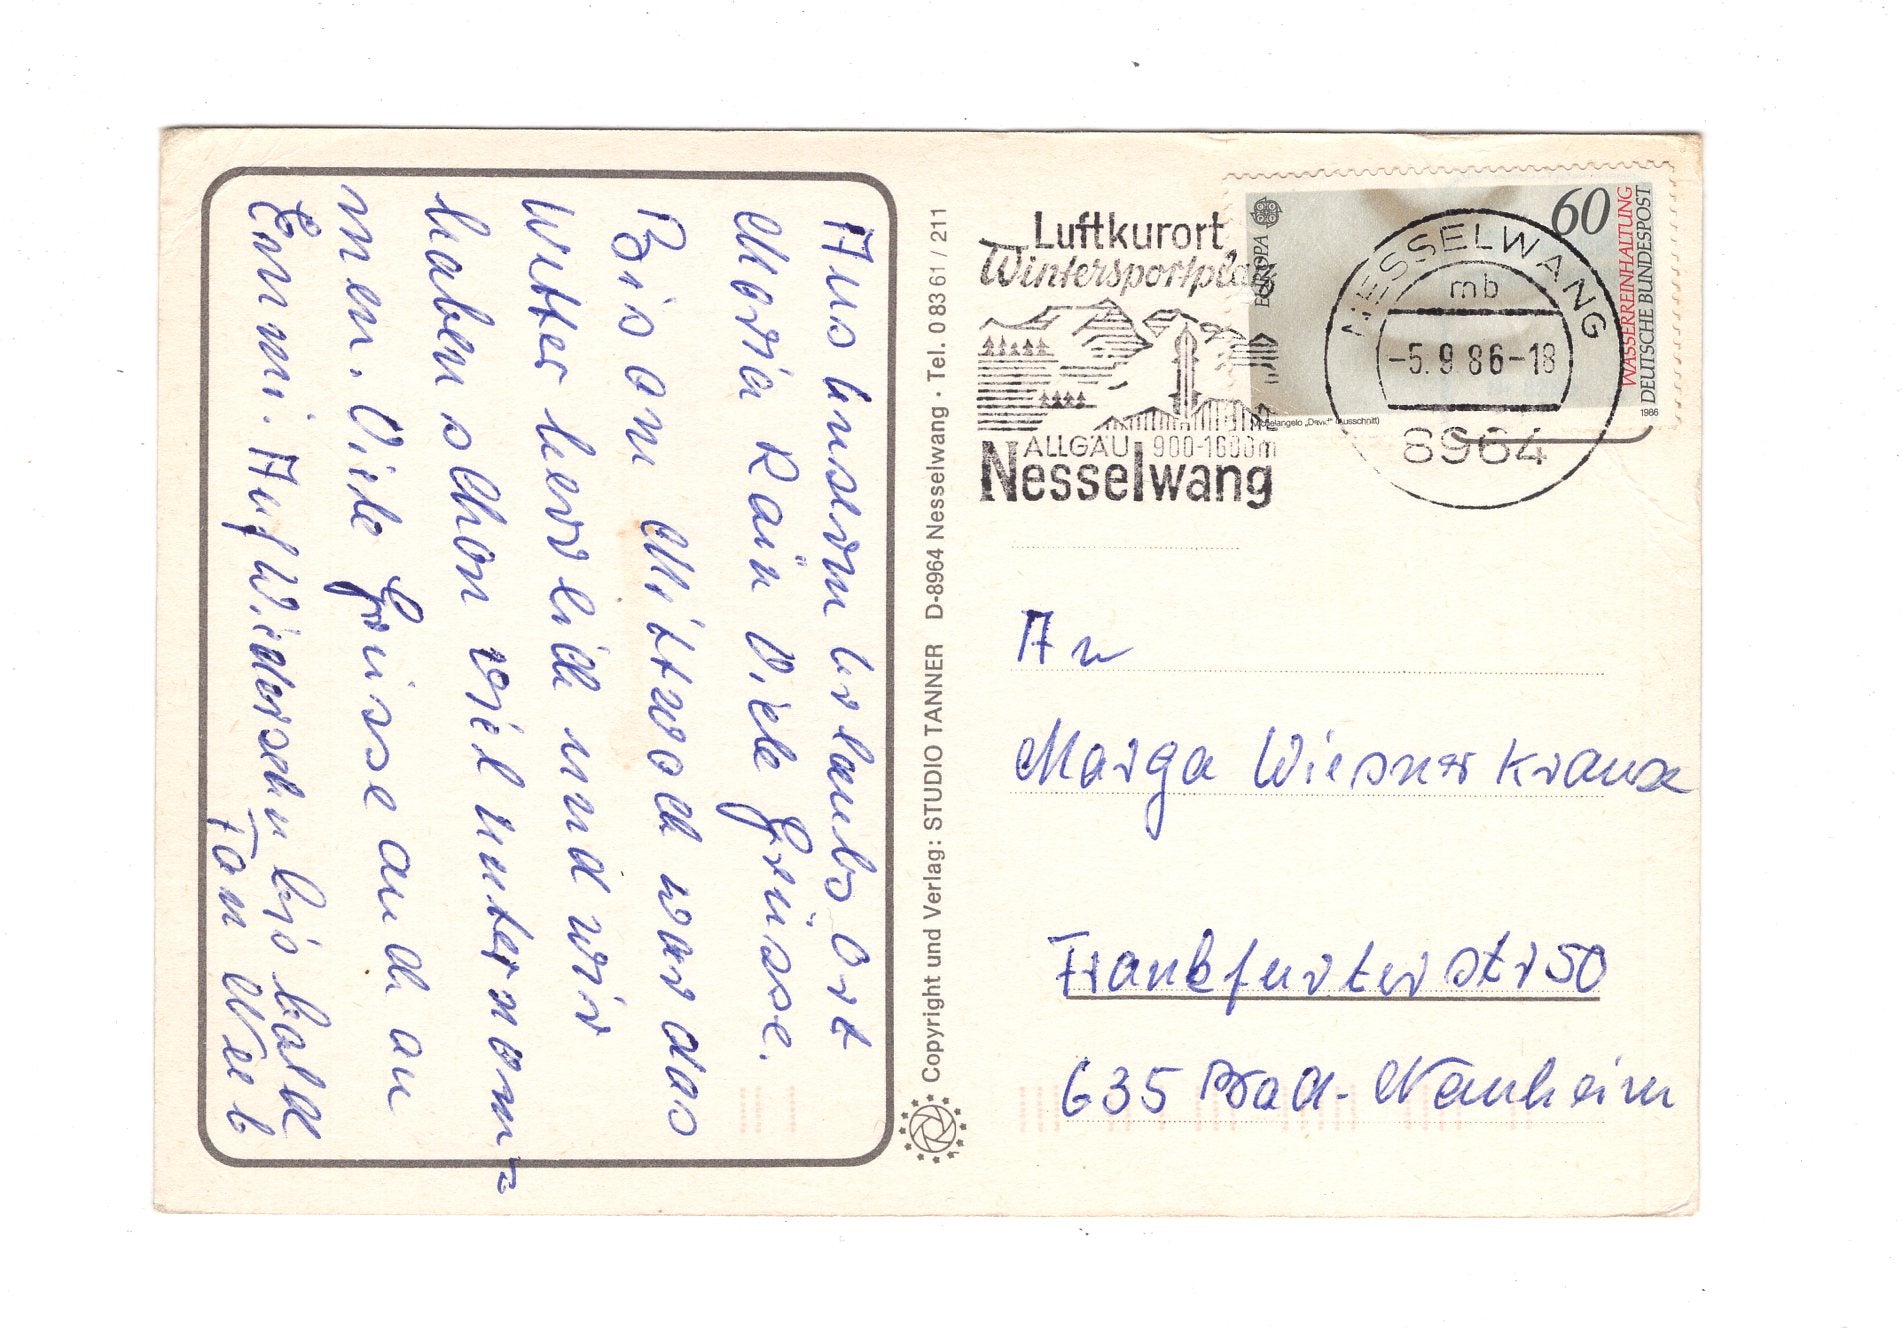 Aus unserm Urlaubs Ort
Maria Rain Viele Grüsse.
Bis am Mittwoch war das
Wetter herrlich und wir
haben schon viel unternom=
men. Viele Grüsse auch an
Emmi. Auf Wiedersehn bis bald
Fam Weeb
Copyright und Verlag: STUDIO TANNER D-8964 Nesselwang · Tel. 0 83 61 / 211
Luftkurort
Wintersportplatz
ALLGÄU 900-1600m
Nesselwang
NESSELWANG
mb
-5.9.86-18
8964
EUROPA
60
WASSERREINHALTUNG
DEUTSCHE BUNDESPOST
Michelangelo „David“ (Ausschnitt)
1986
An
Marga Wiesner Krause
Frankfurterstr 50
635 Bad-Nauheim